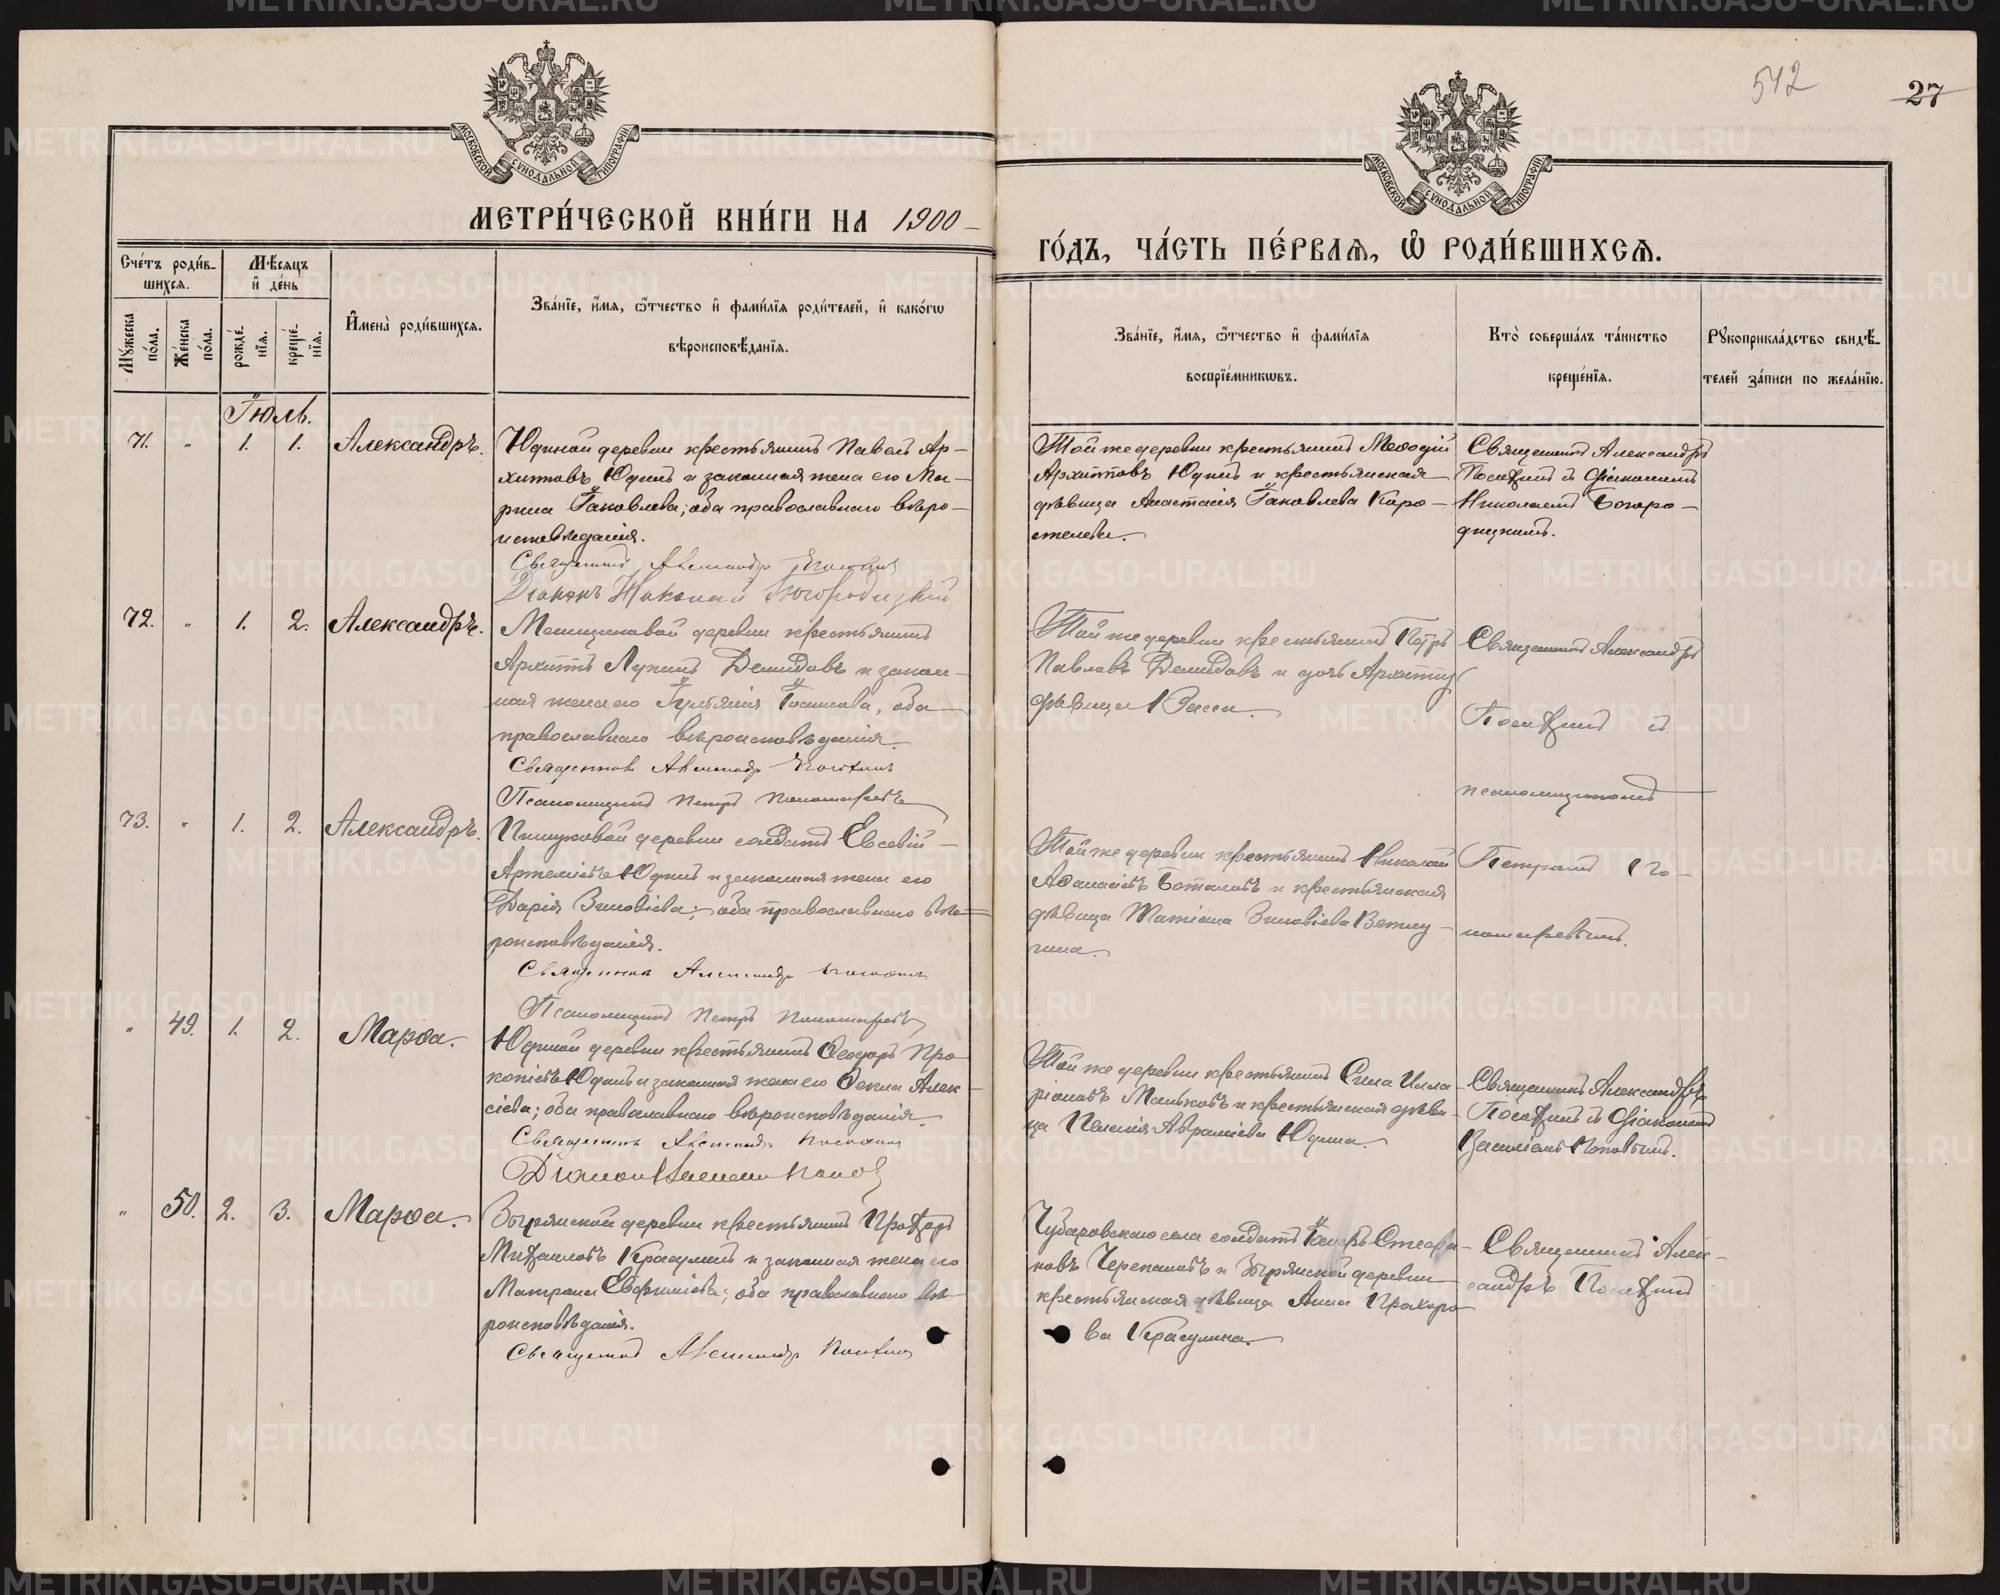 542
27
МОСКОВСКОЙ СѴНОДАЛЬНОЙ ТИПОГРАФІИ
МОСКОВСКОЙ СѴНОДАЛЬНОЙ ТИПОГРАФІИ
МЕТРИ́ЧЕСКОЙ КНИ́ГИ НА 1900
ГО́ДЪ, ЧА́СТЬ ПЕ́РВАЯ, Ѽ РОДИ́ВШИХСЯ.
Сче́тъ роди́в-
шихся.
Мѣ́сяцъ
и҆ де́нь
Му́жеска
по́ла.
Же́нска
по́ла.
рожде́-
нїя.
креще́-
нїя.
И҆мена̀ роди́вшихся.
Зва́нїе, и҆́мя, ѻ҆́тчество и҆ фами́лїя роди́телей, и҆ како́гѡ
вѣроисповѣ́данїя.
Зва́нїе, и҆́мя, ѻ҆́тчество и҆ фами́лїя
воспрїе́мникѡвъ.
Кто̀ соверша́лъ та́инство
креще́нїя.
Рукоприкла́дство свидѣ́-
телей за́писи по жела́нїю.
Іюль.
71. " 1. 1. Александръ.
Юдиной деревни крестьянинъ Павелъ Ар-
хиповъ Юдинъ и законная жена его Ма-
рина Іаковлева; оба православнаго вѣро-
исповѣданія.
Священникъ Александръ
Діаконъ Николай Богородицкій
Той же деревни крестьянинъ Меѳодій
Архиповъ Юдинъ и крестьянская
дѣвица Анастасія Іаковлева Коро-
стелева.
Священникъ Александръ
и Діакономъ
Николаемъ Богоро-
дицкимъ.
72. " 1. 2. Александръ.
деревни крестьянинъ
Архиппъ Лукинъ Демидовъ и закон-
ная жена его Іуліанія оба
православнаго вѣроисповѣданія.
Священникъ Александръ
Псаломщикъ Петръ Пономаревъ
Той же деревни крестьянинъ Петръ
Павловъ Демидовъ и дочь Архиппа
дѣвица
Священникъ Александръ
и
псаломщикомъ
Петромъ По-
номаревымъ.
73. " 1. 2. Александръ.
деревни солдатъ Евсевій
Артеміевъ Юдинъ и законная жена его
Дарія Зиновіева; оба православнаго вѣ-
роисповѣданія.
Священникъ Александръ
Псаломщикъ Петръ Пономаревъ
Той же деревни крестьянинъ Николай
Аѳанасіевъ Боталовъ и крестьянская
дѣвица Татіана Зиновіева Ветлу-
гина.
" 49. 1. 2. Марѳа.
Юдиной деревни крестьянинъ Ѳеодоръ Про-
копіевъ Юдинъ и законная жена его Ѳекла Алек-
сіева; оба православнаго вѣроисповѣданія.
Священникъ Александръ
Діаконъ Василій Поповъ
Той же деревни крестьянинъ Сила Илла-
ріоновъ Маньковъ и крестьянская дѣви-
ца Пелагія Авраміева Юдина.
Священникъ Александръ
и Діакономъ
Василіемъ Поповымъ.
" 50. 2. 3. Марѳа.
Зырянской деревни крестьянинъ Прохоръ
Михаиловъ Красулинъ и законная жена его
Матрона оба православнаго вѣ-
роисповѣданія.
Священникъ Александръ
Чубаровскаго села солдатъ Стефа-
новъ Черепановъ и Зырянской деревни
крестьянская дѣвица Анна Прохоро-
ва Красулина.
Священникъ Алек-
сандръ
METRIKI.GASO-URAL.RU